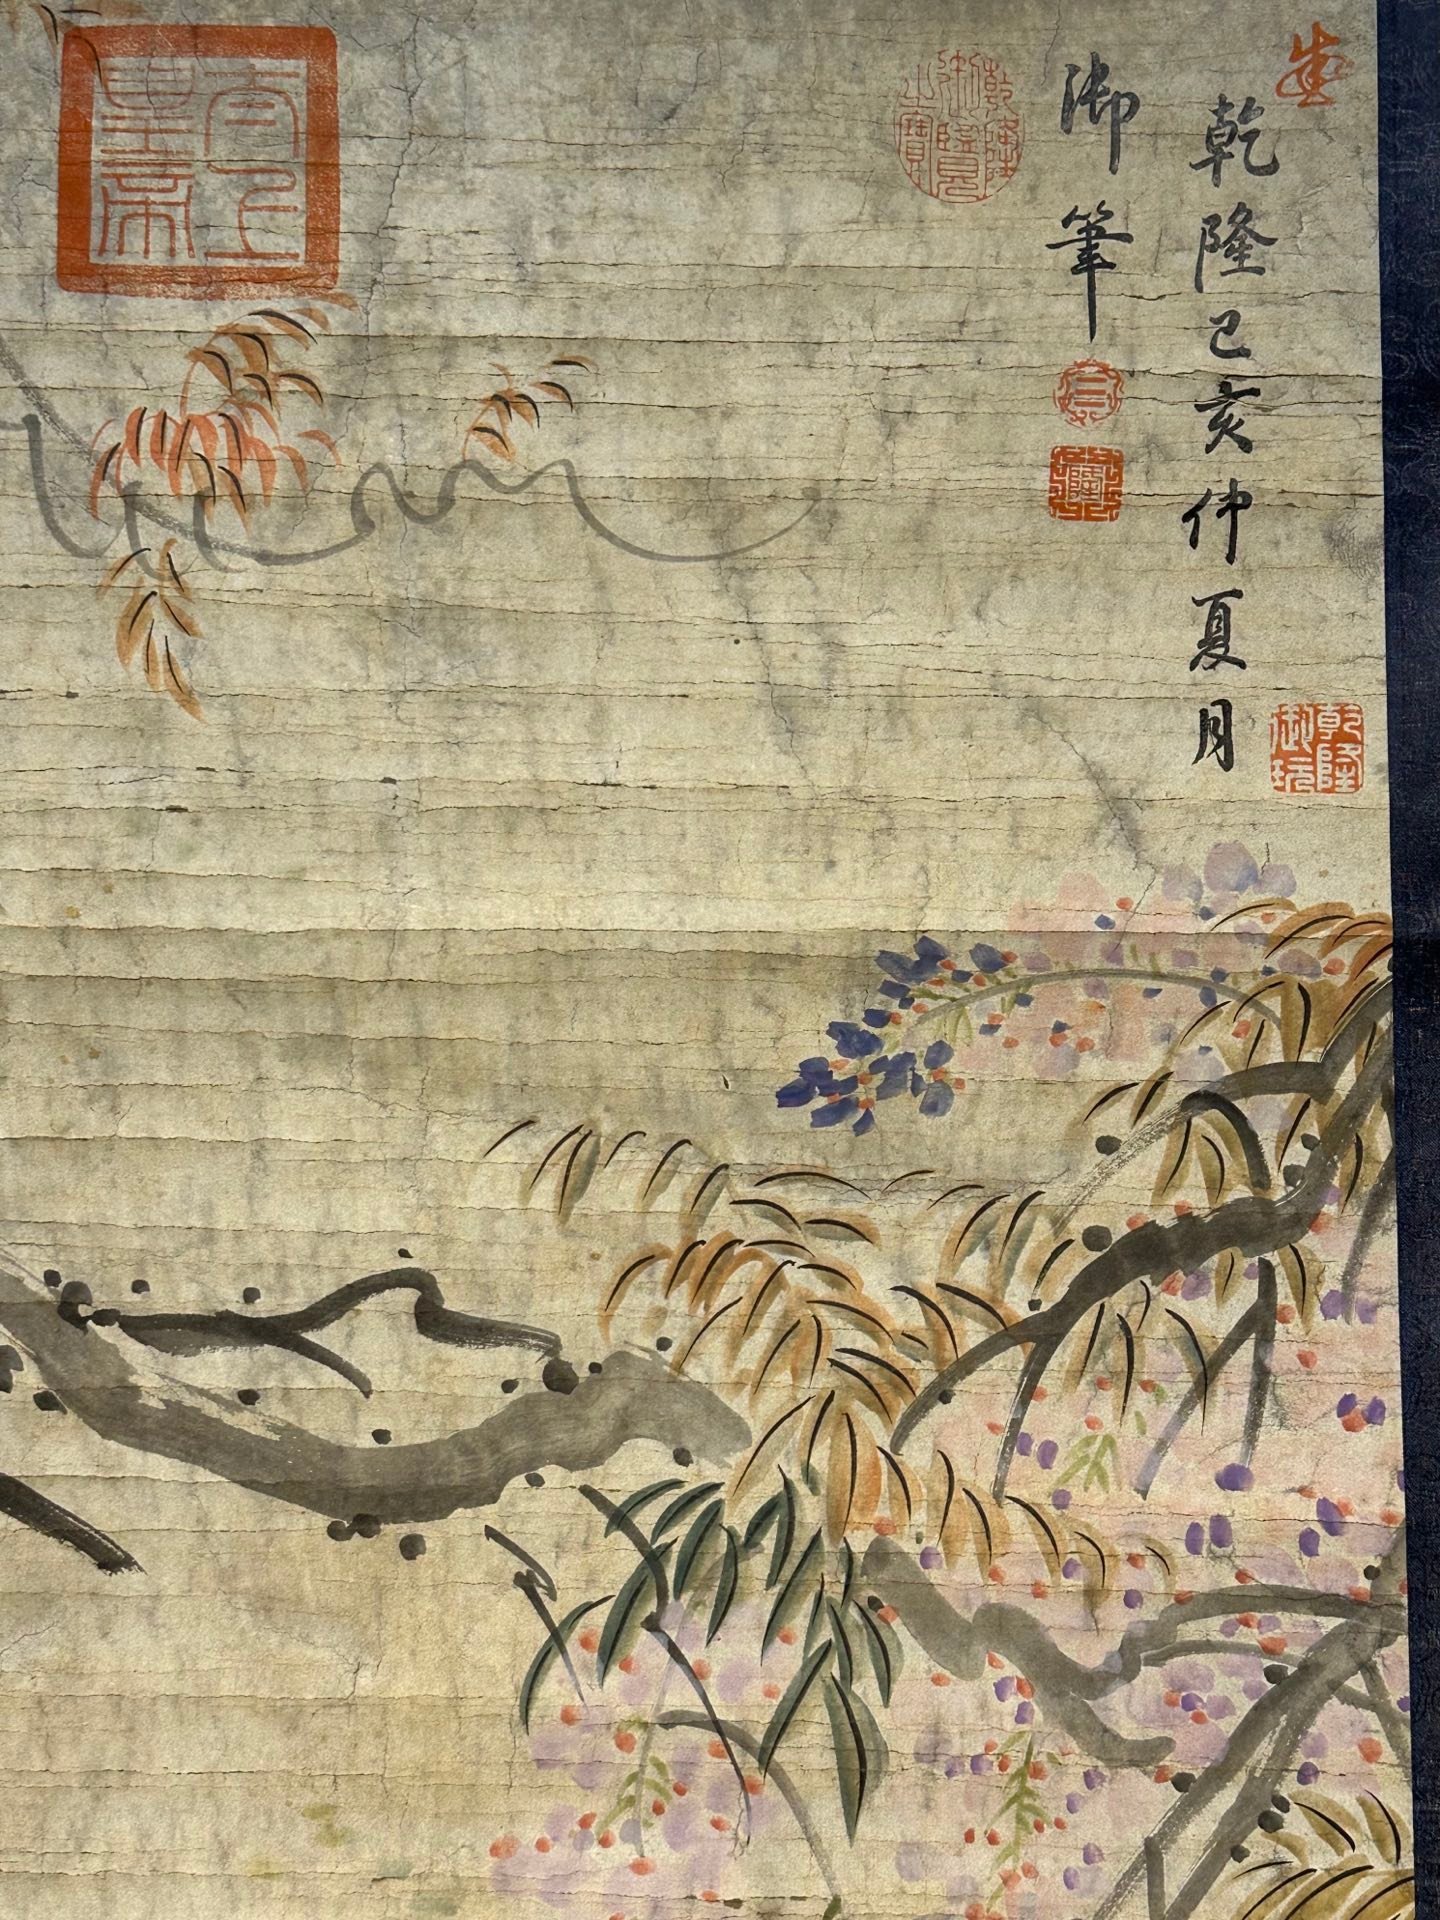 乾隆己亥仲夏月
御筆
乾隆御覽之寶
太上皇帝
乾隆